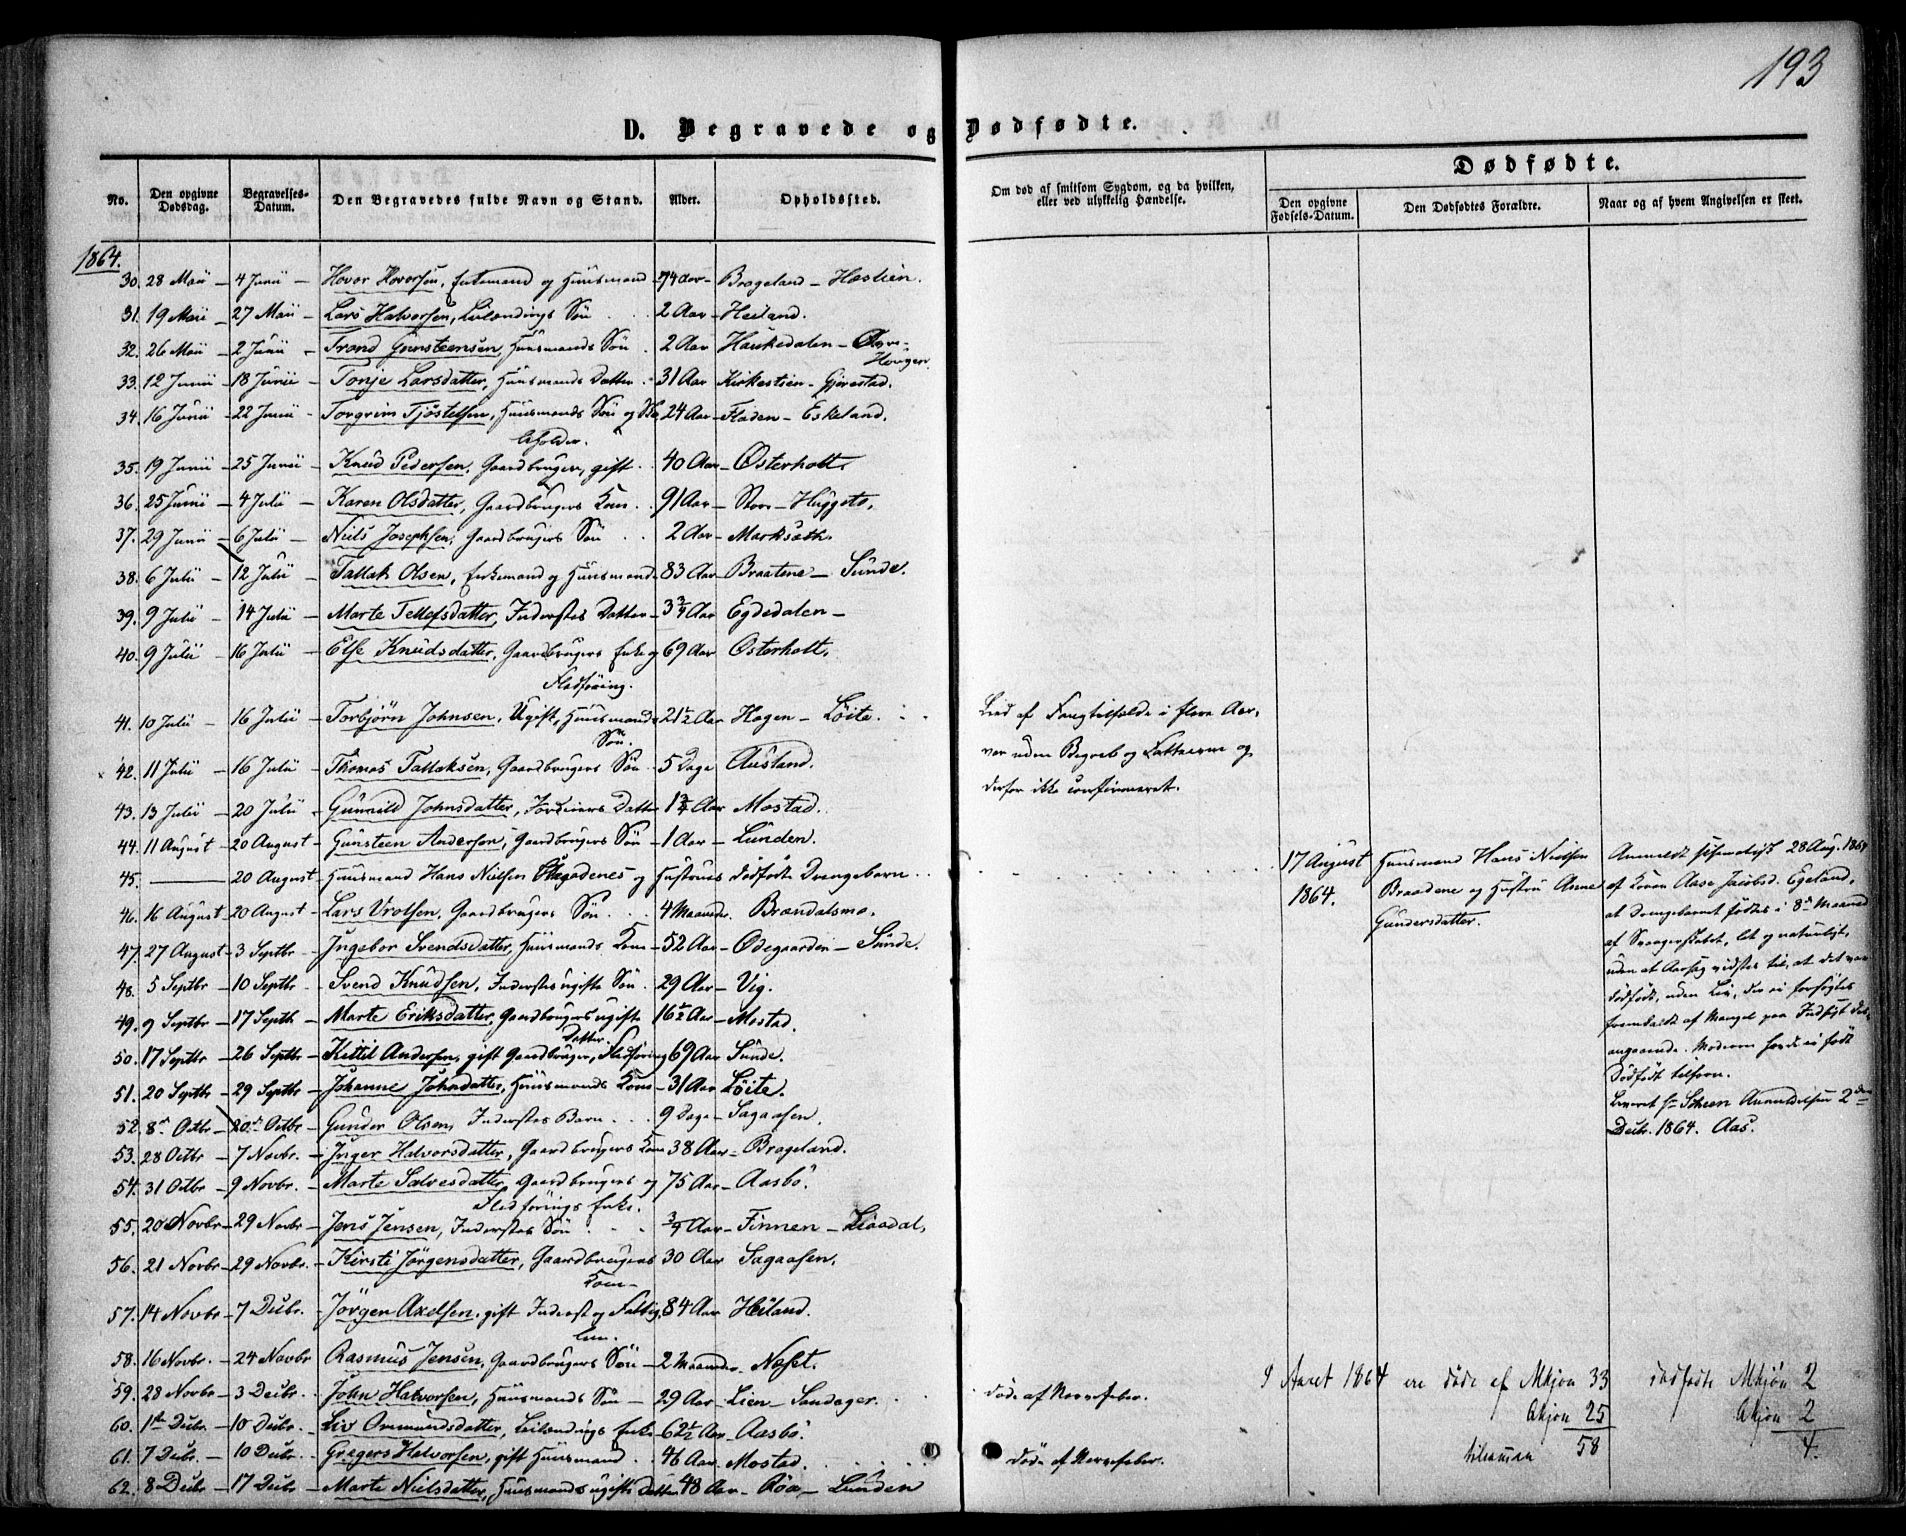 193
D. Begravede og Dødfødte.
No.
Den opgivne Dødsdag.
Begravelses-Datum.
Den Begravedes fulde Navn og Stand.
Alder.
Opholdssted.
Om død af smitsom Sygdom, og da hvilken, eller ved ulykkelig Hændelse.
Dødfødte.
Den opgivne Fødsels-Datum.
Den Dødfødtes Forældre.
Naar og af hvem Angivelsen er skeet.
1864.
30. 28 Maii – 4 Junii – Hovor Hovorsen, Enkemand og Huusmand 74 Aar – Brageland – Hæstien.
31. 19 Maii – 27 Maii – Lars Halvorsen, Leilændings Søn 2 Aar – Heiland.
32. 26 Maii – 2 Junii – Trond Gunsteensen, Huusmands Søn 2 Aar – Haukedalen – Øvre-
Hougen.
33. 12 Junii – 18 Junii – Tonje Larsdatter, Huusmands Datter 31 Aar – Kirkestien – Gjerestad.
34. 16 Junii – 22 Junii – Torgrim Tjøstelsen, Huusmands Søn og Sko 24 Aar – Fladen – Eskeland.
leholder.
35. 19 Junii – 25 Junii – Knud Pedersen, Gaardbruger, gift 40 Aar – Østerholt.
36. 25 Junii – 4 Julii – Karen Olsdatter, Gaardbrugers Kone 91 Aar – Store – Huggsto.
37. 29 Junii – 6 Julii – Niels Josephsen, Gaardbrugers Søn 2 Aar – Marksæth.
38. 6 Julii – 12 Julii – Tallak Olsen, Enkemand og Huusmand 83 Aar – Braatene – Sunde.
39. 9 Julii – 14 Julii – Marte Tellefsdatter, Inderstes Datter – 3 3/4 Aar – Egdedalen –
40. 9 Julii – 16 Julii – Else Knudsdatter, Gaardbrugers Enke og 69 Aar – Østerholt.
Fladføring.
41. 10 Julii – 16 Julii – Torbjørn Johnsen, Ugift, Huusmands 21 1/2 Aar – Hagen – Løite.
Søn.
Lied af Faugtilfælde i flere Aar,
var uden Begreb og Fatteevne og
derfor ikke confirmeret.
42. 11 Julii – 16 Julii – Thomas Tallaksen, Gaardbrugers Søn 5 Dage Ausland.
43. 13 Julii – 20 Julii – Gunnild Johnsdatter, Datter 1 3/4 Aar Mostad.
44. 11 August – 20 August – Gunsteen Andersen, Gaardbrugers Søn – 1 Aar – Lunden.
45. – 20 August – Huusmand Hans Nielsen og Hustrues dødfødte Drengebarn
17 August
1864.
Huusmand Hans Nielsen
Braadene og Hustru Anne
Gundersdatter.
Anmeldt 28 Aug. 1864
af Konen Aase Jacobsd. Egeland,
at Drengebarnet fødtes i 8de Maaned
af Svangerskabet, let og naturligt,
uden at Aarsag vidstes til, at det var
dødfødt, uden Liv, der ei forsøgtes
fremkaldt af Mangel paa Indsigt des-
angaaende. Moderen havde ei født
Dødfødt tilforn.
Leveret Scheen Anmeldelsen 2den
Decbr. 1864. Aas.
46. 16 August – 20 August – Lars Vrolsen, Gaardbrugers Søn 4 Maaneder Brændalsmo.
47. 27 August – 3 Septbr – Ingebor Svendsdatter, Huusmands Kone – 52 Aar – Ødegaarden – Sunde.
48. 5 Septbr – 10 Septbr – Svend Knudsen, Inderstes ugifte Søn 29 Aar – Vig.
49. 9 Septbr – 17 Septbr – Marte Eriksdatter, Gaardbrugers ugifte 16 1/2 Aar – Mostad.
Datter.
50. 17 Septbr – 26 Septbr – Kittil Andersen, gift Gaardbruger, Fladføring 69 Aar – Sunde.
51. 20 Septbr – 29 Septbr – Johanne Johnsdatter, Huusmands Kone – 31 Aar – Løite.
52. 8de Octbr – 20de Octbr – Gunder Olsen, Inderstes Barn 9 Dage – Sagaasen.
53. 28 Octbr – 7 Novbr. – Inger Halvorsdatter, Gaardbrugers Kone 38 Aar – Brageland.
54. 31 Octbr – 9 Novbr. – Marte Salvesdatter, Gaardbrugers og 75 Aar – Aasbø.
Fladførings Enke.
55. 20 Novbr – 29 Novbr – Jens Jensen, Inderstes Søn 3/4 Aar – Finnen – Liaadal.
56. 21 Novbr – 29 Novbr. – Kirsti Jørgensdatter, Gaardbrugers 30 Aar – Sagaasen.
Kone –
57. 14 Novbr – 7 Decbr. – Jørgen Axelsen, gift Inderst og Fattig- 84 Aar – Heiland.
lem.
58. 16 Novbr. – 24 Novbr Rasmus Jensen, Gaardbrugers Søn – 2 Maaneder Næset.
59. 28 Novbr – 3 Decbr. – John Halvorsen, Huusmands Søn – 29 Aar – Lien – Sandager.
døde af Nervefeber.
60. 1ste Decbr. – 10 Decbr. – Liv Ommundsdatter, Leilændings Enke 62 1/2 Aar – Aasbø.
61. 7 Decbr. – 10 Decbr. – Gregers Halvorsen, gift Huusmand 46 Aar – Mostad.
døde af Nervefeber.
62. 8 Decbr – 17 Decbr – Marte Nielsdatter, Huusmands ugifte Datter 48 Aar – Røa – Lunden
I Aaret 1864 ere døde af Mkjøn 33 dødfødte Mkjøn 2
Qkjøn 25 Qkjøn 2
tilsammen 58 4.